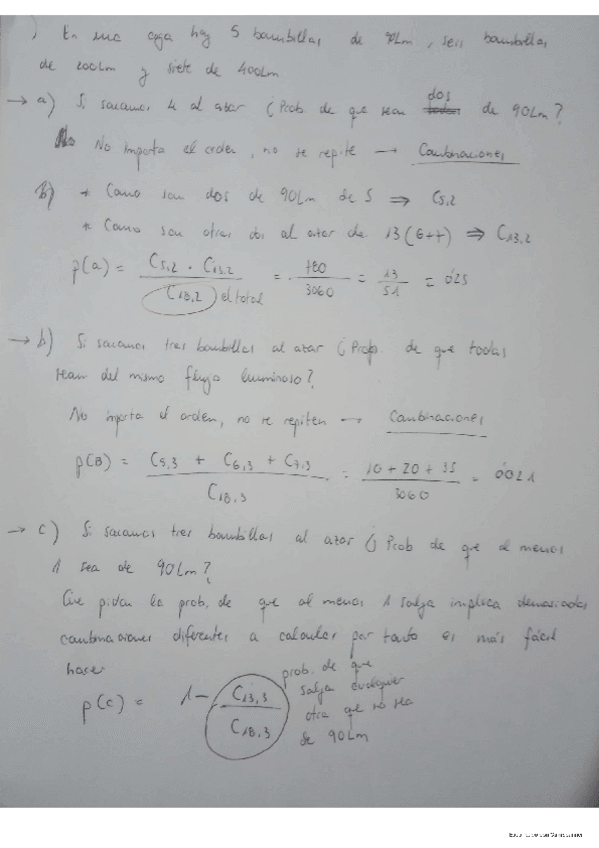 ) En una caja hay 5 bombillas de 90Lm, seis bombillas
de 200Lm y siete de 400Lm
→ a) Si sacamos 4 al azar ¿Prob. de que sean dos de 90Lm?
No importa el orden, no se repite → Combinaciones
* Como son dos de 90Lm de 5 ⇒ C5,2
* Como son otras dos al azar de 13 (6+7) ⇒ C13,2
p(a) = C5,2 · C13,2 / C18,2 el total = 780 / 3060 = 13 / 51 = 0'25
→ b) Si sacamos tres bombillas al azar ¿Prob. de que todas
sean del mismo flujo luminoso?
No importa el orden, no se repiten → Combinaciones
p(B) = C5,3 + C6,3 + C7,3 / C18,3 = 10 + 20 + 35 / 3060 = 0'021
→ c) Si sacamos tres bombillas al azar ¿Prob de que al menos
1 sea de 90Lm?
Que pidan la prob. de que al menos 1 salga implica demasiadas
combinaciones diferentes a calcular por tanto es más fácil
hacer:
p(c) = 1 - C13,3 / C18,3
prob. de que
salga cualquier
otra que no sea
de 90Lm